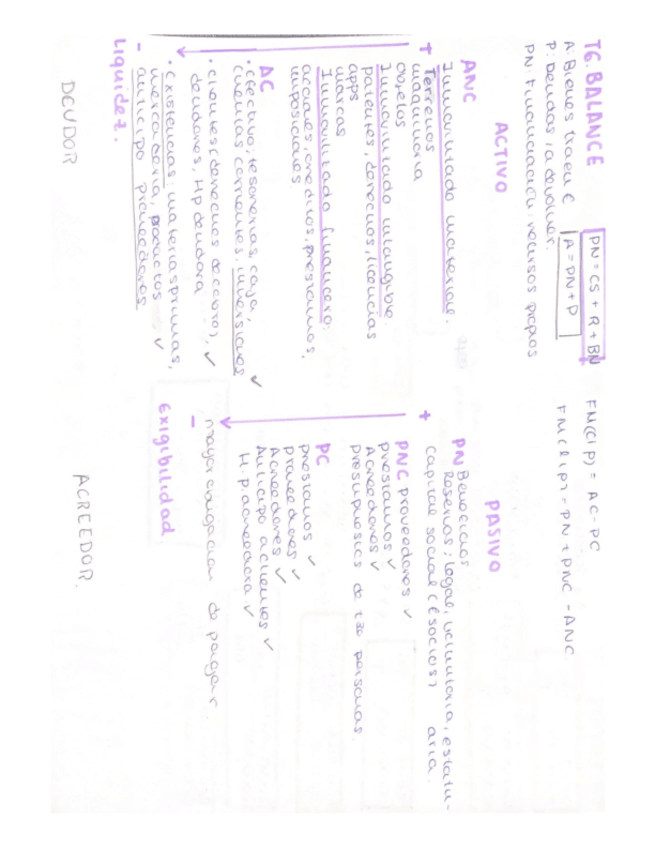 T6: BALANCE
A: Bienes tiene e
P: Deudas / a devolver.
PN: Financiación, recursos propios
PN = CS + R + BN
A = PN + P
FM(c|p) = AC - PC
FM(l|p) = PN + PNC - ANC
ACTIVO
ANC
Inmovilizado material:
+ Terrenos
maquinaria
objetos
Inmovilizado intangible:
patentes, derechos, licencias
apps
marcas
Inmovilizado financiero:
acciones, creditos, prestamos,
imposiciones
AC
• Efectivo: tesoreria, caja
cuentas corrientes, inversiones ✓
• Clientes (derechos de cobro), ✓
deudores, Hp deudora
• Existencias: materias primas,
mercaderia, productos ✓
- anticipo proveedores
Liquidez.
DEUDOR
PASIVO
PN Beneficios
Reservas; legal, voluntaria, estatu-
+ capital social (€socios) aria.
PNC proveedores ✓
prestamos ✓
Acreedores ✓
presupuestos de tas personas.
PC
prestamos ✓
proveedores ✓
Acreedores ✓
Anticipo a clientes ✓
H. p acreedora ✓
- mayor obligacion de pagar.
Exigibilidad
ACREEDOR.